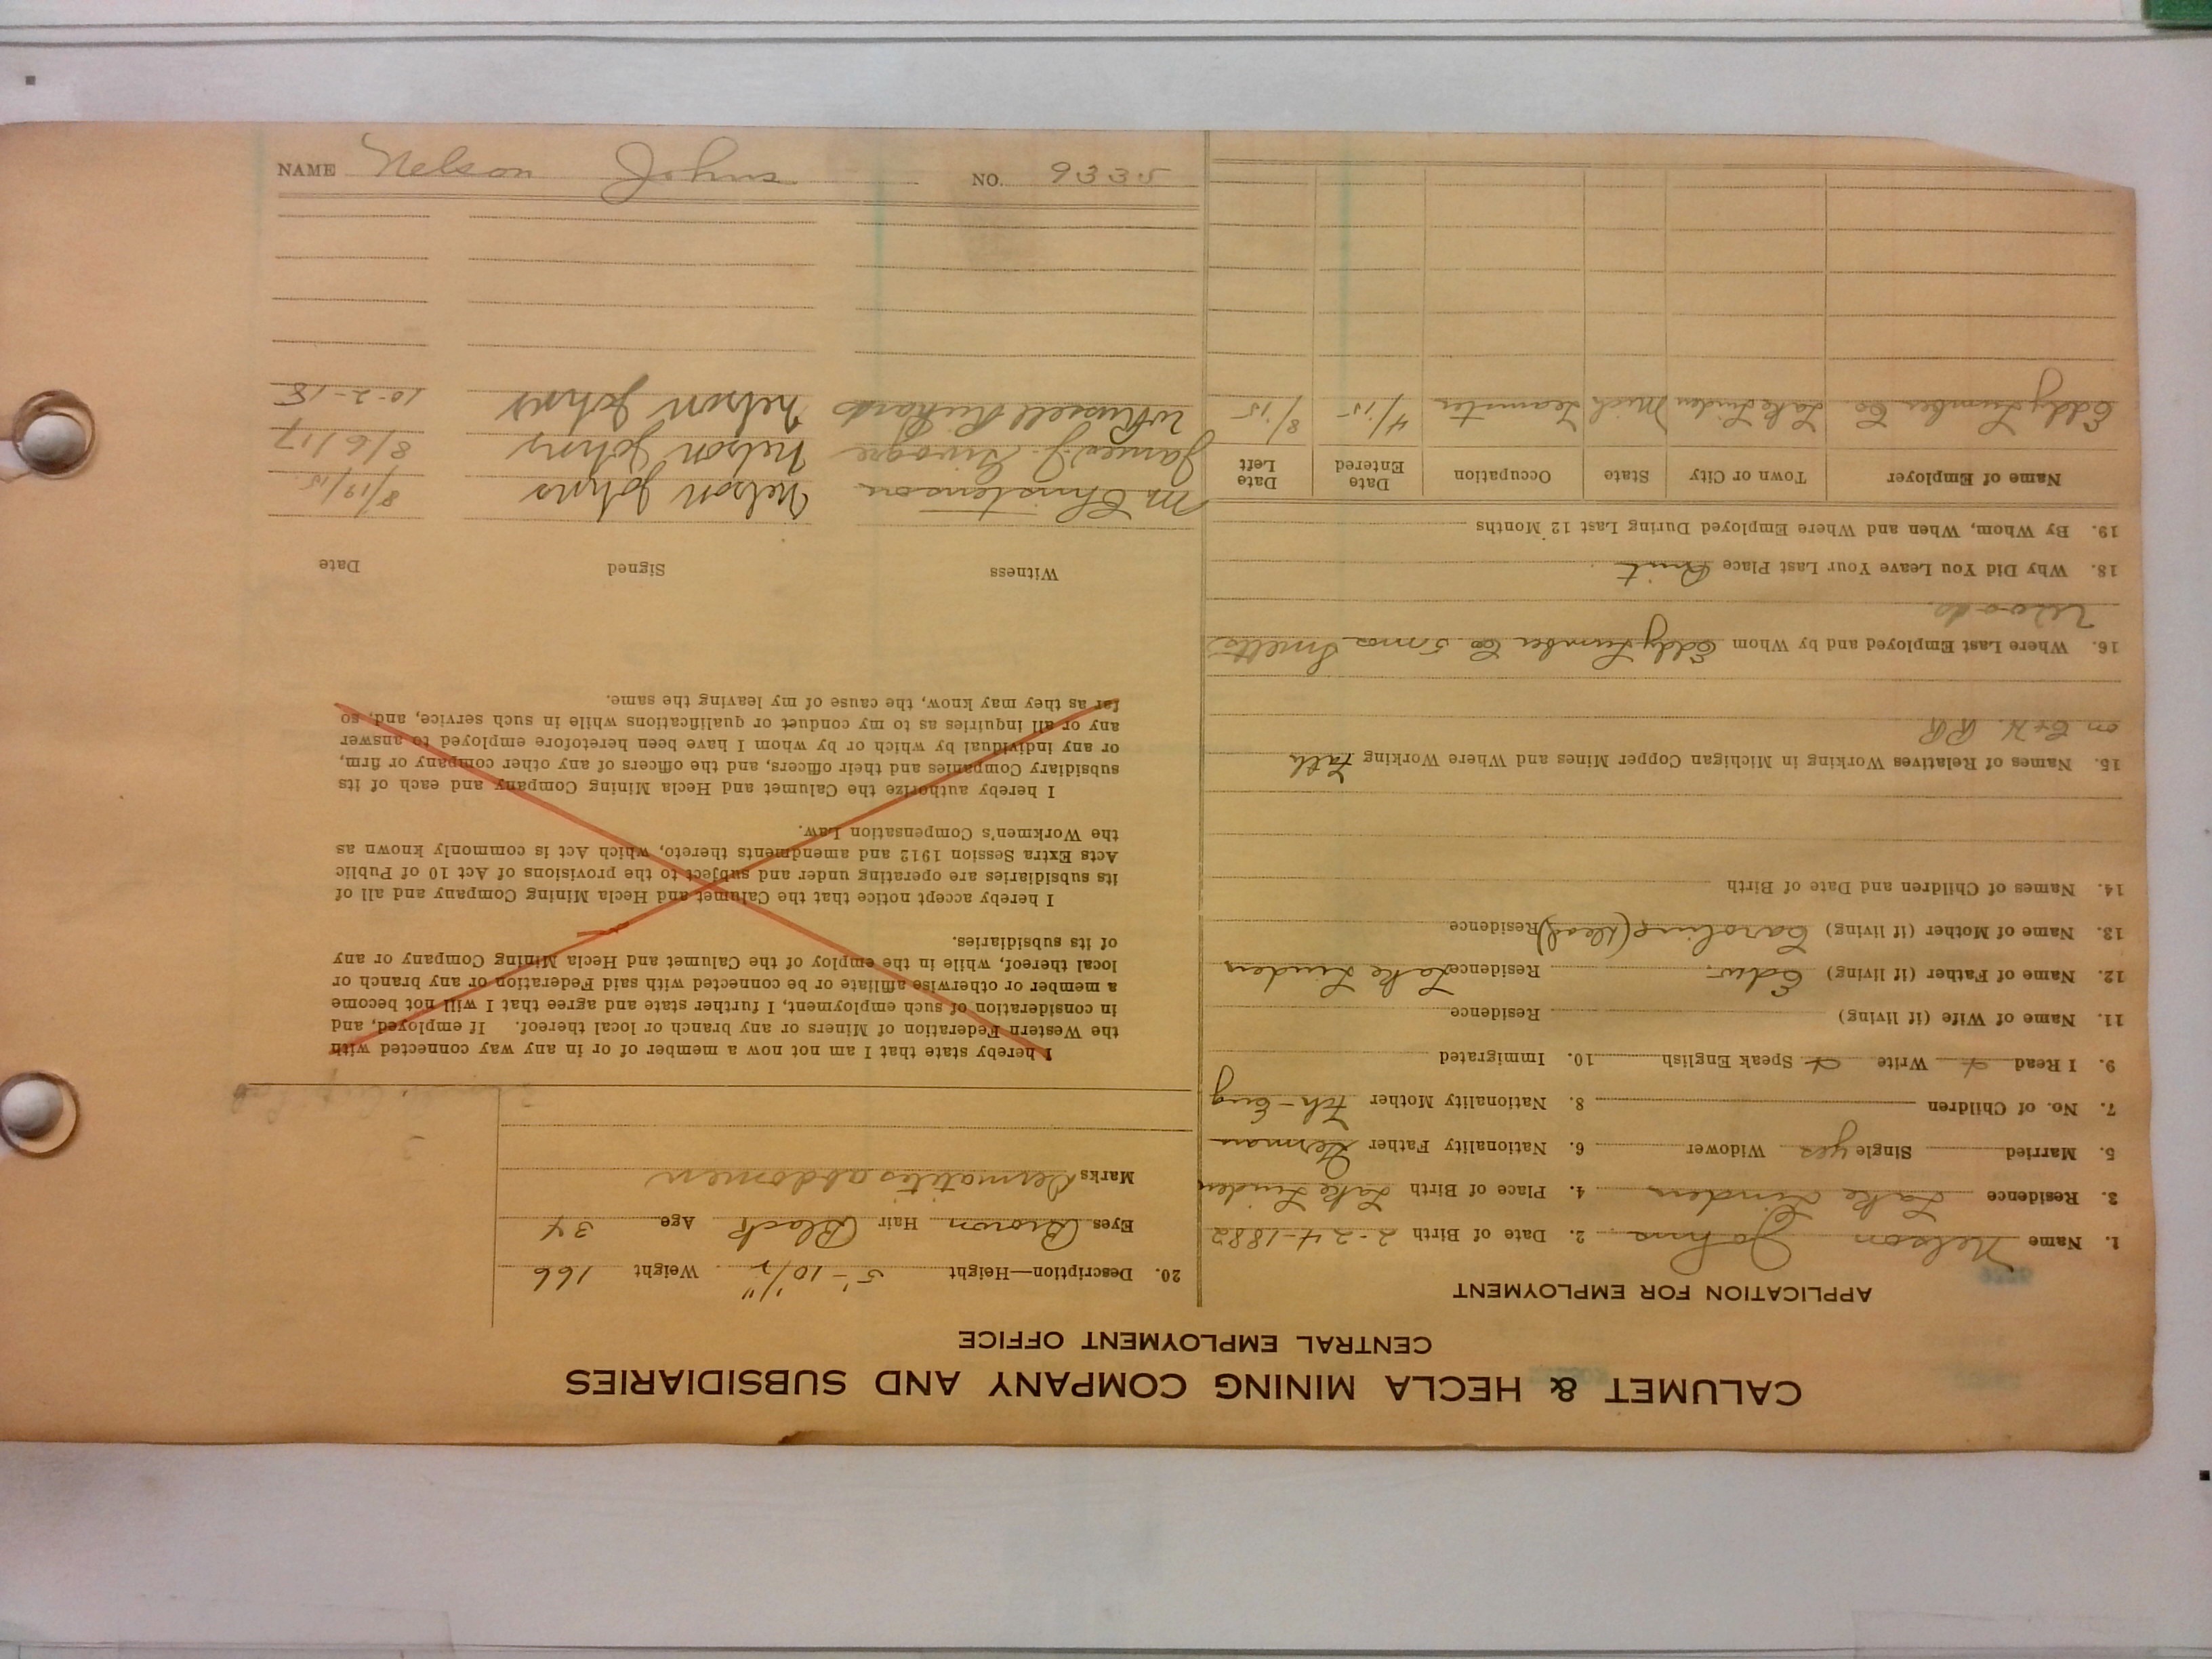 NAME Nelson Johns NO. 9335
CALUMET & HECLA MINING COMPANY AND SUBSIDIARIES
CENTRAL EMPLOYMENT OFFICE
APPLICATION FOR EMPLOYMENT
1. Name Nelson Johns 2. Date of Birth 2-24-1882
3. Residence Lake Linden 4. Place of Birth Lake Linden
5. Married Single yes Widower 6. Nationality Father German
7. No. of Children 8. Nationality Mother Fch-Eng
9. I Read Write Speak English 10. Immigrated
11. Name of Wife (if living) Residence
12. Name of Father (if living) Edw. Residence Lake Linden
13. Name of Mother (if living) Caroline (dead) Residence
14. Names of Children and Date of Birth
15. Names of Relatives Working in Michigan Copper Mines and Where Working Fath
on C+H. RR
16. Where Last Employed and by Whom Eddy Lumber Co
Woods.
18. Why Did You Leave Your Last Place Quit
19. By Whom, When and Where Employed During Last 12 Months
Name of Employer Town or City State Occupation Date Entered Date Left
Eddy Lumber Co Lake Linden Mich Teamster 4/15 8/15
20. Description—Height 5'-10 1/2" Weight 166
Eyes Brown Hair Black Age 34
Marks Dermatites abdomen
I hereby state that I am not now a member of or in any way connected with
the Western Federation of Miners or any branch or local thereof. If employed, and
in consideration of such employment, I further state and agree that I will not become
a member or otherwise affiliate or be connected with said Federation or any branch or
local thereof, while in the employ of the Calumet and Hecla Mining Company or any
of its subsidiaries.
I hereby accept notice that the Calumet and Hecla Mining Company and all of
its subsidiaries are operating under and subject to the provisions of Act 10 of Public
Acts Extra Session 1912 and amendments thereto, which Act is commonly known as
the Workmen's Compensation Law.
I hereby authorize the Calumet and Hecla Mining Company and each of its
subsidiary Companies and their officers, and the officers of any other company or firm,
or any individual by which or by whom I have been heretofore employed to answer
any or all inquiries as to my conduct or qualifications while in such service, and, so
far as they may know, the cause of my leaving the same.
Witness Signed Date
M Christenson Nelson Johns 8/19/15
James J. Nelson Johns 8/6/17
W Russell Richards Nelson Johns 10-2-18